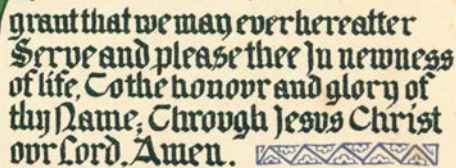 grant that we may ever hereafter
Serve and please thee In newness
of life, To the honovr and glory of
thy Name; Through Jesvs Christ
ovr Lord. Amen.